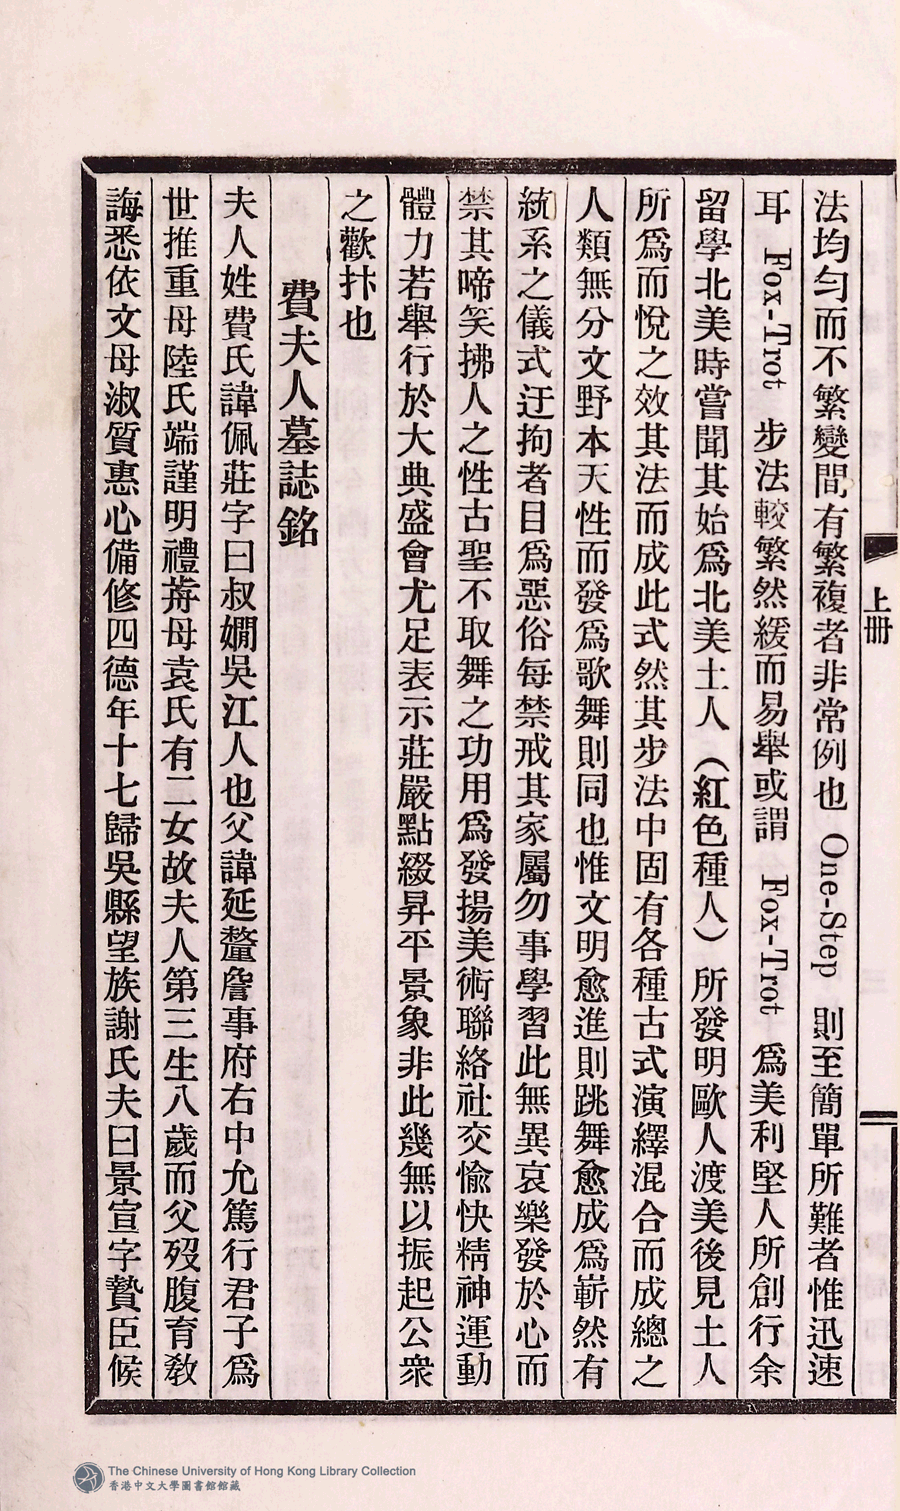 法均匀而不繁變間有繁複者非常例也 One-Step 則至簡單所難者惟迅速
耳 Fox-Trot 步法較繁然緩而易舉或謂 Fox-Trot 爲美利堅人所創行余
留學北美時嘗聞其始爲北美土人（紅色種人）所發明歐人渡美後見土人
所爲而悅之效其法而成此式然其步法中固有各種古式演繹混合而成總之
人類無分文野本天性而發爲歌舞則同也惟文明愈進則跳舞愈成爲嶄然有
統系之儀式迂拘者目爲惡俗每禁戒其家屬勿事學習此無異哀樂發於心而
禁其啼笑拂人之性古聖不取舞之功用爲發揚美術聯絡社交愉快精神運動
體力若舉行於大典盛會尤足表示莊嚴點綴昇平景象非此幾無以振起公衆
之歡抃也
費夫人墓誌銘
夫人姓費氏諱佩莊字曰叔嫺吳江人也父諱延釐詹事府右中允篤行君子爲
世推重母陸氏端謹明禮蒋母袁氏有二女故夫人第三生八歲而父歿腹育敎
誨悉依文母淑質惠心備修四德年十七歸吳縣望族謝氏夫曰景宣字贄臣候
上册
The Chinese University of Hong Kong Library Collection
香港中文大學圖書館館藏